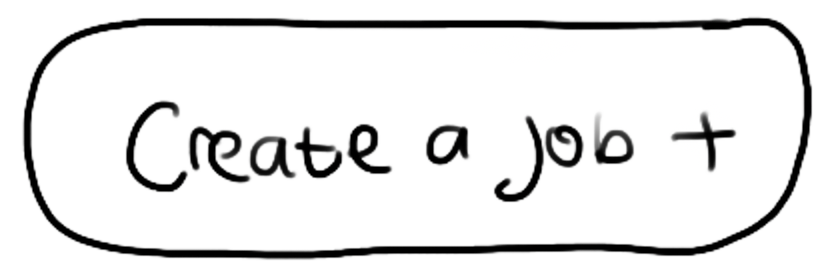 Create a job +